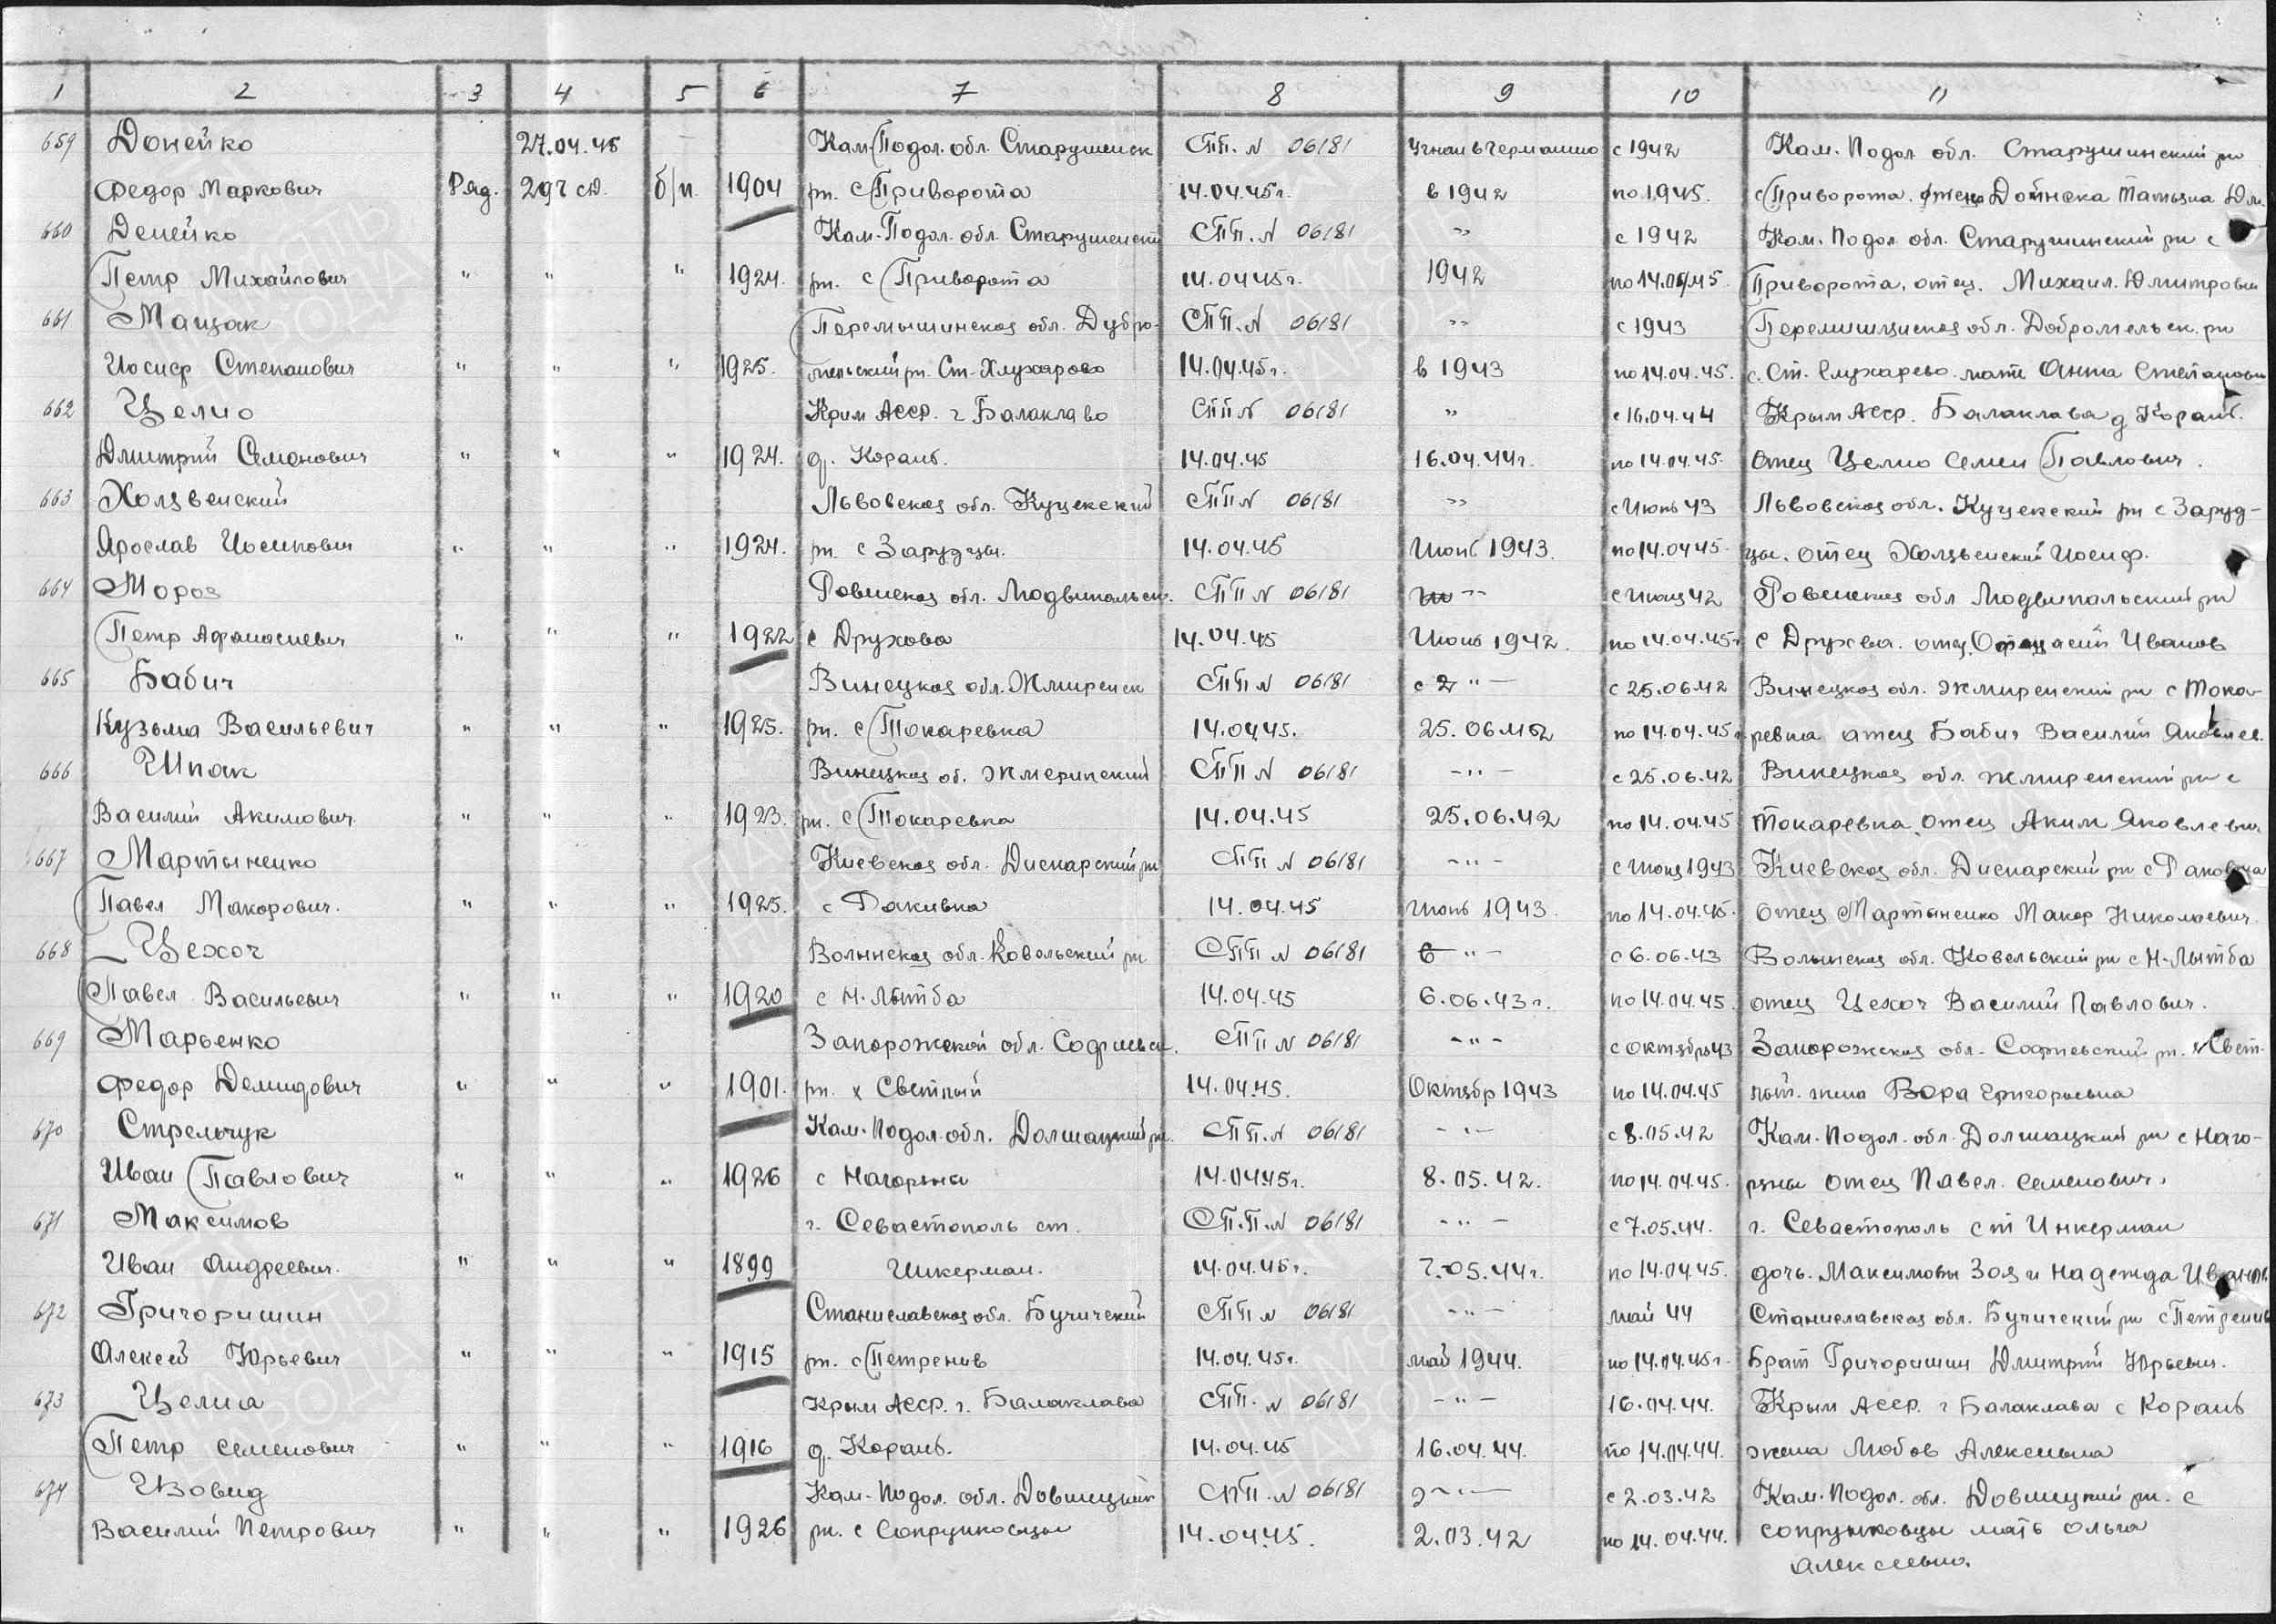 1 2 3 4 5 6 7 8 9 10 11
659 Донейко 27.04.45 — Кам-Подол. обл. Старушенск СПП. N 06181 Угнан в Германию с 1942 Кам. Подол обл. Старушинский рн
Федор Маркович Ряд. 297 сд. б/п. 1904 рн. с Приворота 14.04.45г. в 1942 по 1945. с Приворота.
660 Денейко Кам-Подол. обл. Старушенский СПП. N 06181 " с 1942 Кам. Подол обл. Старушинский рн с
Петр Михайлович " " " 1924. рн. с Приворота 14.04.45г. 1942 по 14.04.45 Приворота, отец. Михаил. Дмитрович
661 Мацак Перемышинская обл. Дубро- СПП. N 06181 " с 1943 Перемишлиская обл. Добромельск. рн
Иосиф Степанович " " " 1925. мельский рн. Ст. Хлухарово 14.04.45г. в 1943 по 14.04.45. с. Ст. мать Анна Степановн
662 Целио Крим Асср. г Балаклаво СПП N 06181 " с 16.04.44 Крым Асср. Балаклава д Корань.
Дмитрий Семенович " " " 1924. д. Корань. 14.04.45 16.04.44г. по 14.04.45. Отец Целио Семен Павлович.
663 Холявенский Львовская обл. Куцекский СПП N 06181 " с Июнь 43 Львовская обл. Куцекский рн с Заруд-
Ярослав Иосипович " " " 1924. рн. с Зарудцы. 14.04.45 Июнь 1943. по 14.04.45. цы. отец Иосиф.
664 Мороз Ровенская обл. Людвипольск. СПП N 06181 " с Июнь 42 Ровенская обл Людвипольский рн
Петр Афанасиевич " " " 1922 с Друхова 14.04.45 Июнь 1942. по 14.04.45г с Друхова. отец Иванов
665 Бабич Винецкая обл. Жмиренск СПП N 06181 " — с 25.06.42 Винецкая обл. Жмиренский рн с Тока-
Кузьма Васильевич " " " 1925. рн. с Токаревка 14.04.45. 25.06.42 по 14.04.45г. ревка отец Бабич Василий Яковлев.
666 Шпак Винецкая об. Жмеринский СПП N 06181 - " - с 25.06.42 Винецкая обл. Жмиренский рн с
Василий Акимович " " " 1923. рн. с Токаревка 14.04.45 25.06.42 по 14.04.45 Токаревка отец Аким Яковлевич
667 Мартыненко Киевская обл. Диснарский рн СПП N 06181 - " - с Июнь 1943 Киевская обл. Диснарский рн с
Павел Макорович. " " " 1925. с Ракивка 14.04.45 Июнь 1943. по 14.04.45. Отец Мартыненко Макор Николаевич.
668 Цехоч Волынская обл. Ковельский рн СПП N 06181 " - с 6.06.43 Волынская обл. Ковельский рн с Н-Лытба
Павел Васильевич " " " 1920 с Н-Лытба 14.04.45 6.06.43г. по 14.04.45. отец Цехоч Василий Павлович.
669 Марьенко Запорожской обл. Софиевск. СПП N 06181 - " - с Октябрь 43 Запорожская обл. Софиевский рн. х Свет-
Федор Демидович " " " 1901. рн. х Светлый 14.04.45. Октябр 1943 по 14.04.45 лый. жена Вора Григорьевна
670 Стрельчук Кам. Подол. обл. Долмацкий рн. СПП. N 06181 - " - с 8.05.42 Кам. Подол. обл. Долмацкий рн с Наго-
Иван Павлович " " " 1926 с Нагоряна 14.04.45г. 8.05.42. по 14.04.45. ряны отец Павел. Семенович.
671 Максимов г. Севастополь ст. СП.П. N 06181 - " - с 7.05.44. г. Севастополь ст Инкерман
Иван Андреевич. " " " 1899 Инкерман. 14.04.45г. 7.05.44г. по 14.04.45. дочь. Максимовы Зоя и Надежда Ивановн
672 Григоришин Станиславская обл. Бучичский СПП N 06181 - " - май 44 Станиславская обл. Бучичский рн с Петренив
Алексей Юрьевич " " " 1915 рн. с Петренив 14.04.45г. май 1944. по 14.04.45г. Брат Григоришин Дмитрий Юрьевич.
673 Целиа Крым Асср. г. Балаклава СПП. N 06181 - " - 16.04.44. Крым Асср. г Балаклава с Корань
Петр Семенович " " " 1916 д. Корань. 14.04.45 16.04.44. по 14.04.44. жена Любов Алексеевна
674 Изовид Кам-Подол. обл. Довшецкий СПП. N 06181 " — с 2.03.42 Кам. Подол. обл. Довшецкий рн. с
Василий Петрович " " " 1926 рн. с Сопрунковцы 14.04.45. 2.03.42 по 14.04.44. Сопрунковцы мать Ольга
Алексеевна.